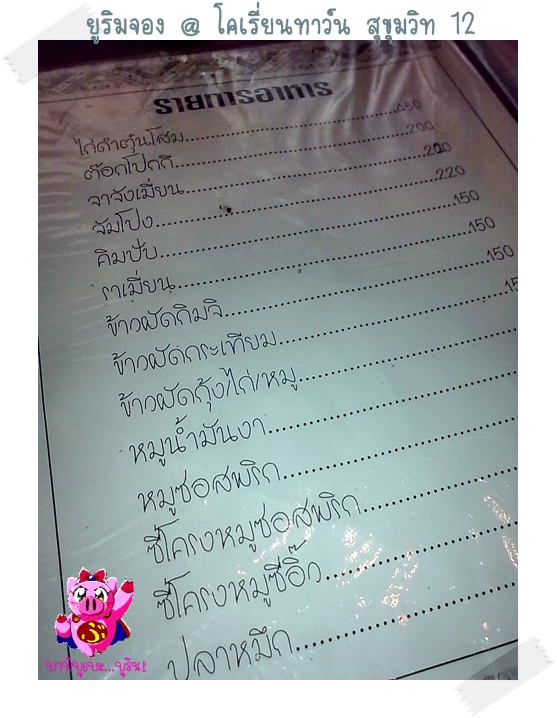 ยูริมจอง @ โคเรี่ยนทาว์น สุขุมวิท 12
รายการอาหาร
ไก่ดำตุ๋นโสม 450
ต๊อกโปกกี 200
จาจังเมี่ยน 220
จัมโปง 220
คิมปับ 150
ราเมี่ยน 150
ข้าวผัดกิมจิ 150
ข้าวผัดกระเทียม
ข้าวผัดกุ้ง/ไก่/หมู
หมูน้ำมันงา
หมูซอสพริก
ซี่โครงหมูซอสพริก
ซี่โครงหมูซีอิ๊ว
ปลาหมึก